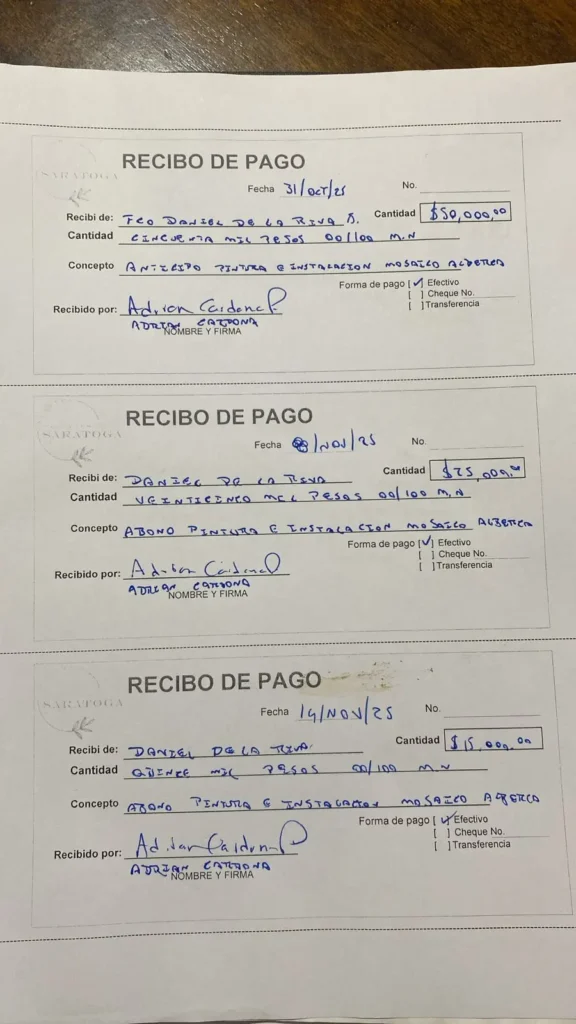 SARATOGA
RECIBO DE PAGO
Fecha 31/OCT/25 No.
Recibi de: FCO DANIEL DE LA RIVA B. Cantidad $50,000.00
Cantidad CINCUENTA MIL PESOS 00/100 M.N
Concepto ANTICIPO PINTURA E INSTALACION MOSAICO ALBERCA
Forma de pago [✓] Efectivo
[ ] Cheque No.
[ ] Transferencia
Recibido por: Adrian Cardona P.
ADRIAN CARDONA
NOMBRE Y FIRMA
SARATOGA
RECIBO DE PAGO
Fecha /NOV/25 No.
Recibi de: DANIEL DE LA RIVA Cantidad $25,000.00
Cantidad VEINTICINCO MIL PESOS 00/100 M.N
Concepto ABONO PINTURA E INSTALACION MOSAICO ALBERCA
Forma de pago [✓] Efectivo
[ ] Cheque No.
[ ] Transferencia
Recibido por: Adrian Cardona
ADRIAN CARDONA
NOMBRE Y FIRMA
SARATOGA
RECIBO DE PAGO
Fecha 14/NOV/25 No.
Recibi de: DANIEL DE LA RIVA Cantidad $15,000.00
Cantidad QUINCE MIL PESOS 00/100 M.N
Concepto ABONO PINTURA E INSTALACION MOSAICO ALBERCA
Forma de pago [✓] Efectivo
[ ] Cheque No.
[ ] Transferencia
Recibido por: Adrian Cardona P
ADRIAN CARDONA
NOMBRE Y FIRMA